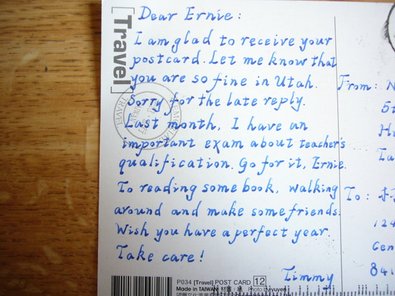 [Travel]
Dear Ernie:
I am glad to receive your
postcard. Let me know that
you are so fine in Utah.
Sorry for the late reply.
Last month, I have an
important exam about teacher's
qualification. Go for it, Ernie.
To reading some book, walking
around and make some friends.
Wish you have a perfect year.
Take care!
Timmy
From: N
To:
124
P034 [Travel] POST CARD 12
Made in TAIWAN